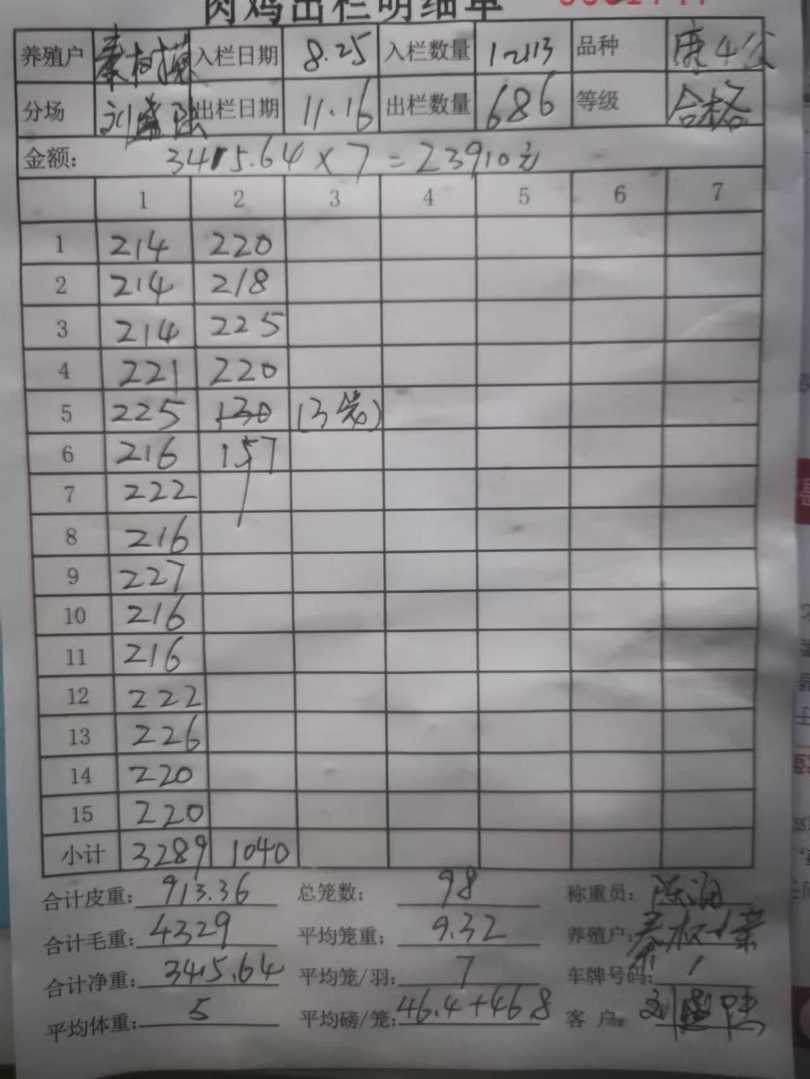 肉鸡出栏明细单
养殖户 入栏日期 8.25 入栏数量 12113 品种
分场 出栏日期 11.16 出栏数量 686 等级 合格
金额: 3415.64×7=23910元
1 2 3 4 5 6 7
1 214 220
2 214 218
3 214 225
4 221 220
5 225 130 (3笼)
6 216 157
7 222
8 216
9 227
10 216
11 216
12 222
13 226
14 220
15 220
小计 3289 1040
合计皮重: 913.36 总笼数: 98 称重员:
合计毛重: 4329 平均笼重: 9.32 养殖户:
合计净重: 3415.64 平均笼/羽: 7 车牌号码:
平均体重: 5 平均磅/笼: 46.4+468 客户: